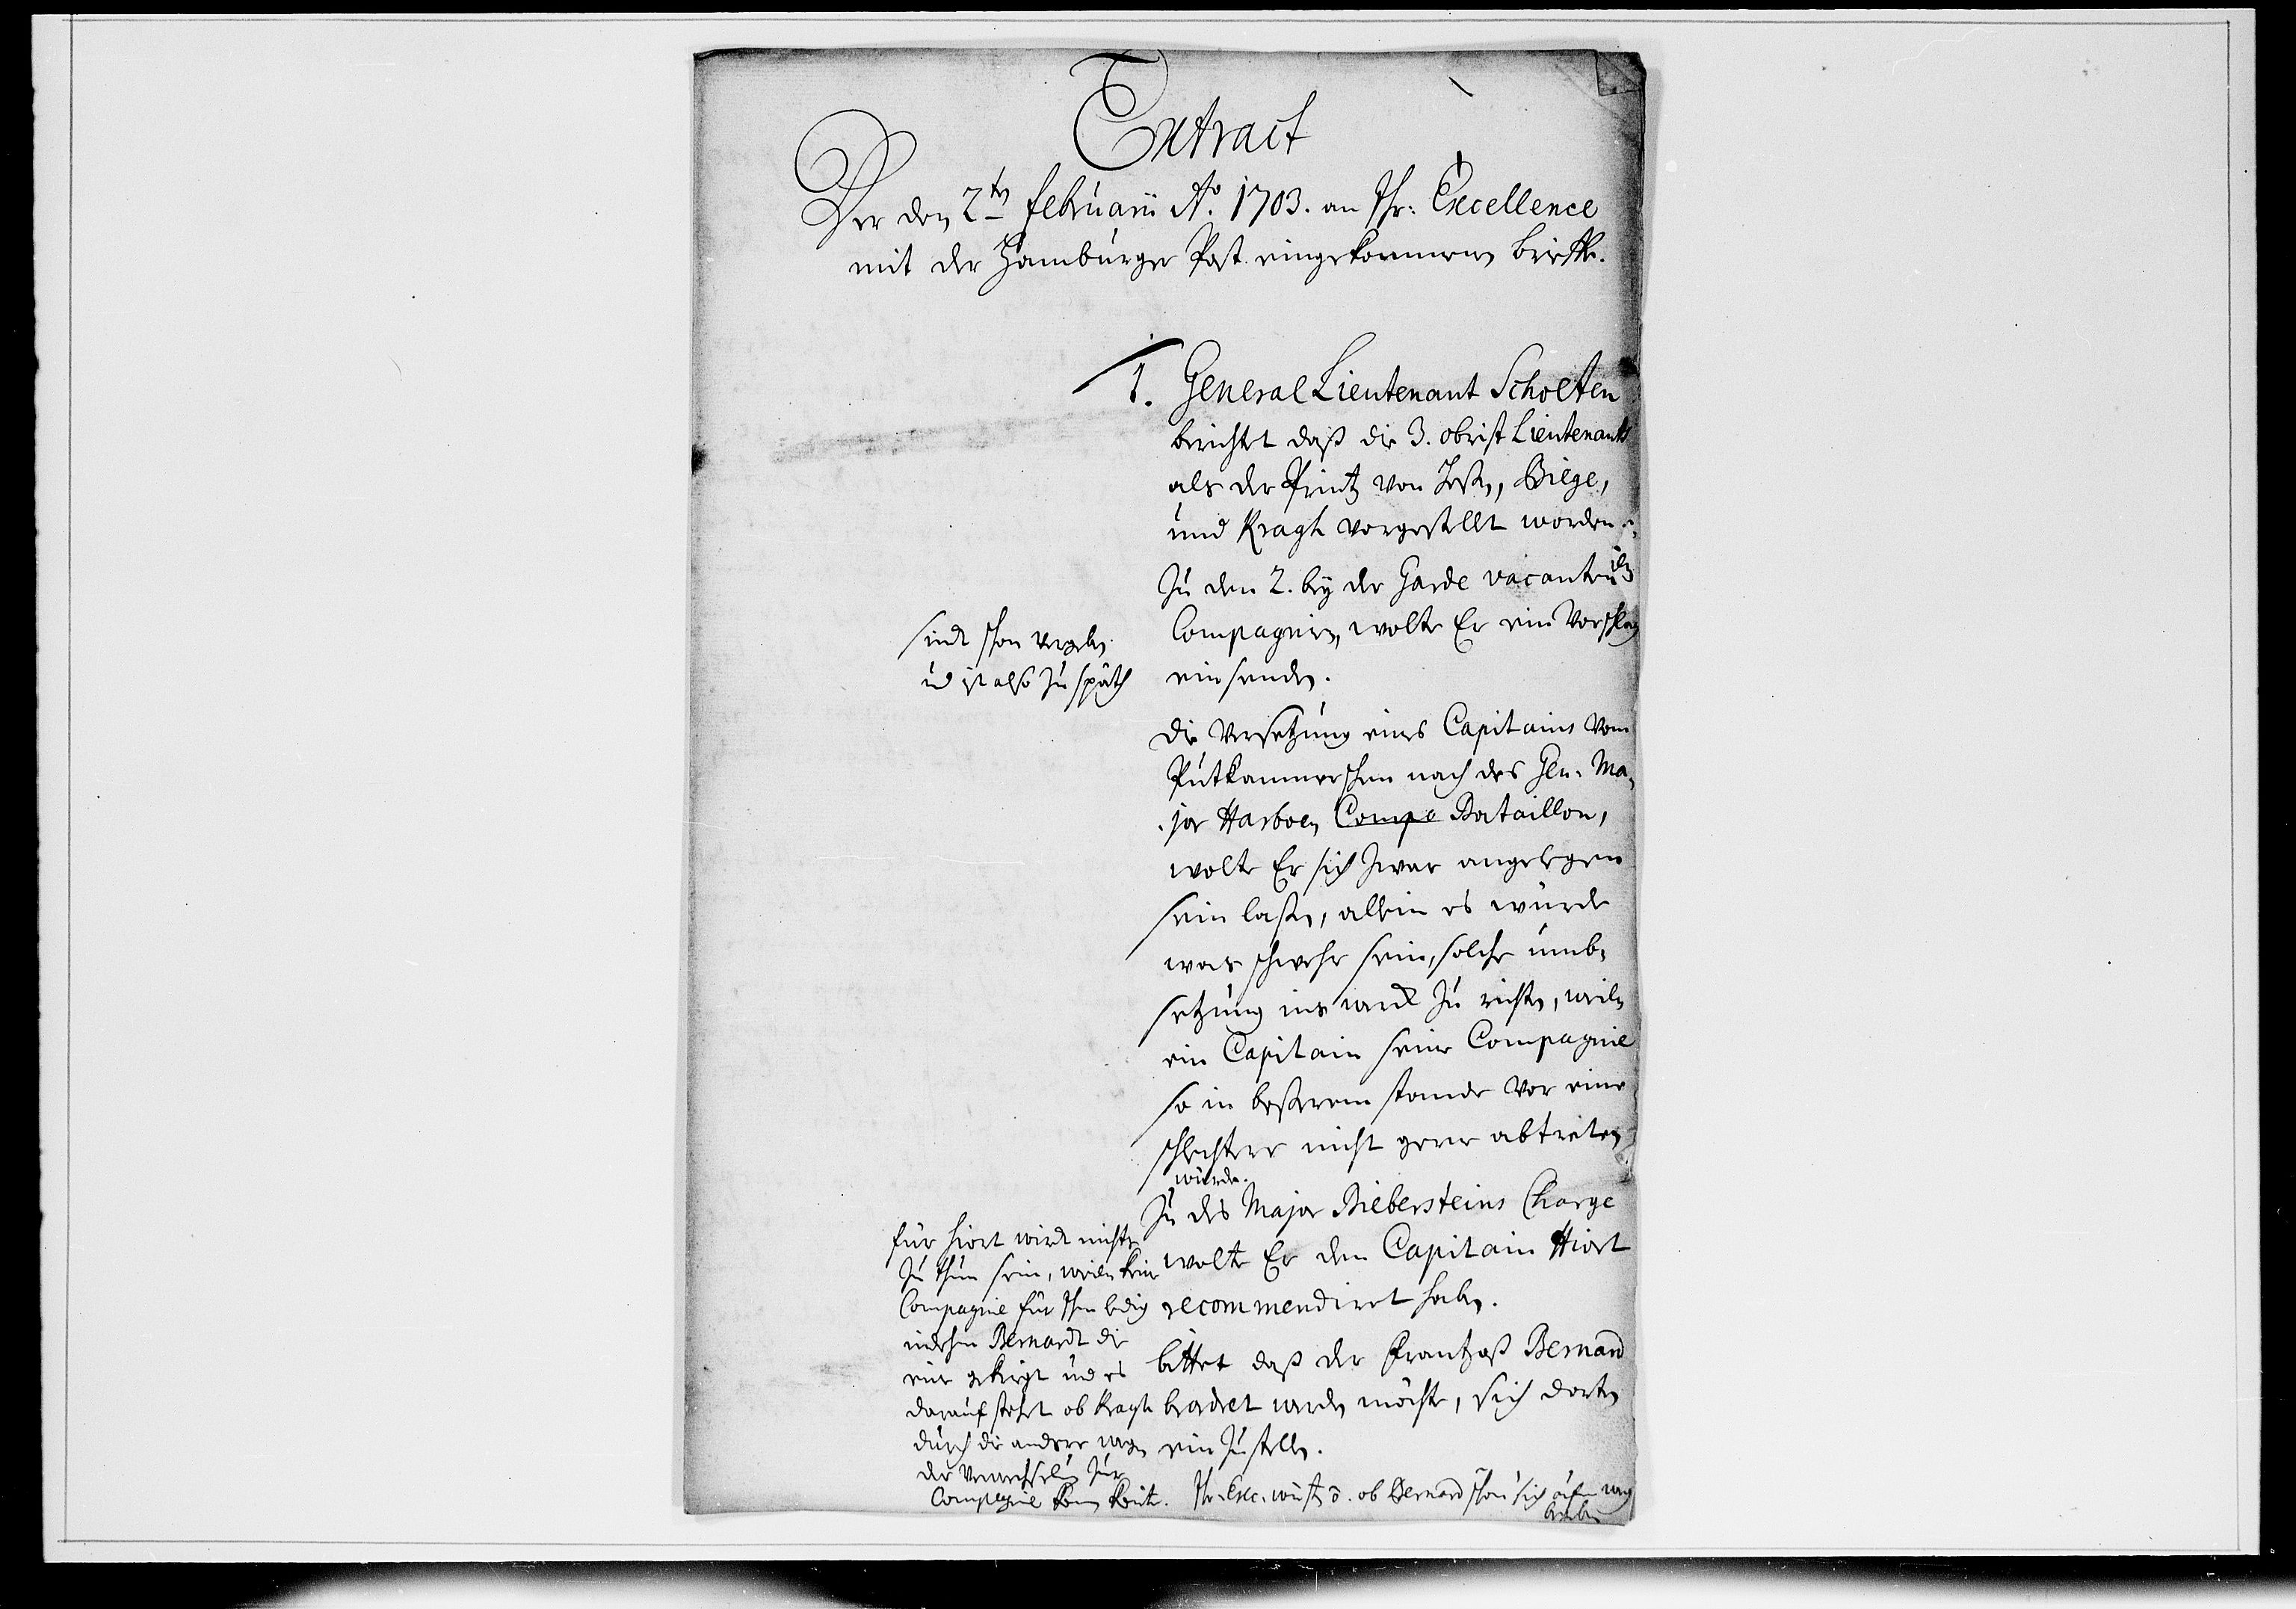 Extract
Der den 2ten Februarii Ao. 1703. an Ihr: Excellence
mit der Hamburger Post eingekommenen brieffe.
1. General Lieutenant Scholten
berichtet daß die 3. obrist Lieutenants
als der Printz von Heßen, Biege,
und Kragh vorgestellt worden.
Zu den 2. bey der Garde vacanten
Compagnien, wolte Er ein Vorschlag
einsenden.
sindt schon vergeben
und ist also zu späth
Die Versetzung eines Capitains vom
Putkammerschen nach des Gen. Ma-
jor Harboen Compe Bataillon,
wolte Er sich zwar angelegen
sein laßen, allein es würde
was schwehr sein, solche umb-
setzung ins werck zu richten, weilen
ein Capitain seine Compagnie
so in beßerem stande vor eine
schlechtere nicht gerne abtreten
würde.
Zu des Major Biebersteins Charge
wolte Er den Capitain Hiort
recommendiret haben.
für Hiort wird nichts
zu thun sein, weilen keine
Compagnie für Ihn ledig
indehm Bernardt die
eine gekriegt und es
darauf stehet ob Kragh
durch die andere wegen
der Verwechselung zur
Compagnie kommen könte.
bittet daß der Frantzoß Bernard
beordret werden möchte, sich dorten
ein zustellen.
Ihr. Exc. wüsten d. ob Bernard schon sich aufn weg
begeben